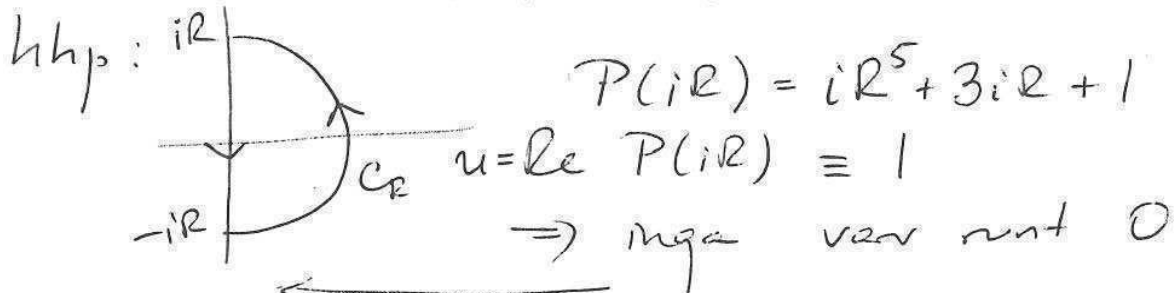 hhp: iR
P(iR) = iR⁵ + 3iR + 1
C_R u = Re P(iR) ≡ 1
-iR ⇒ inga varv runt 0